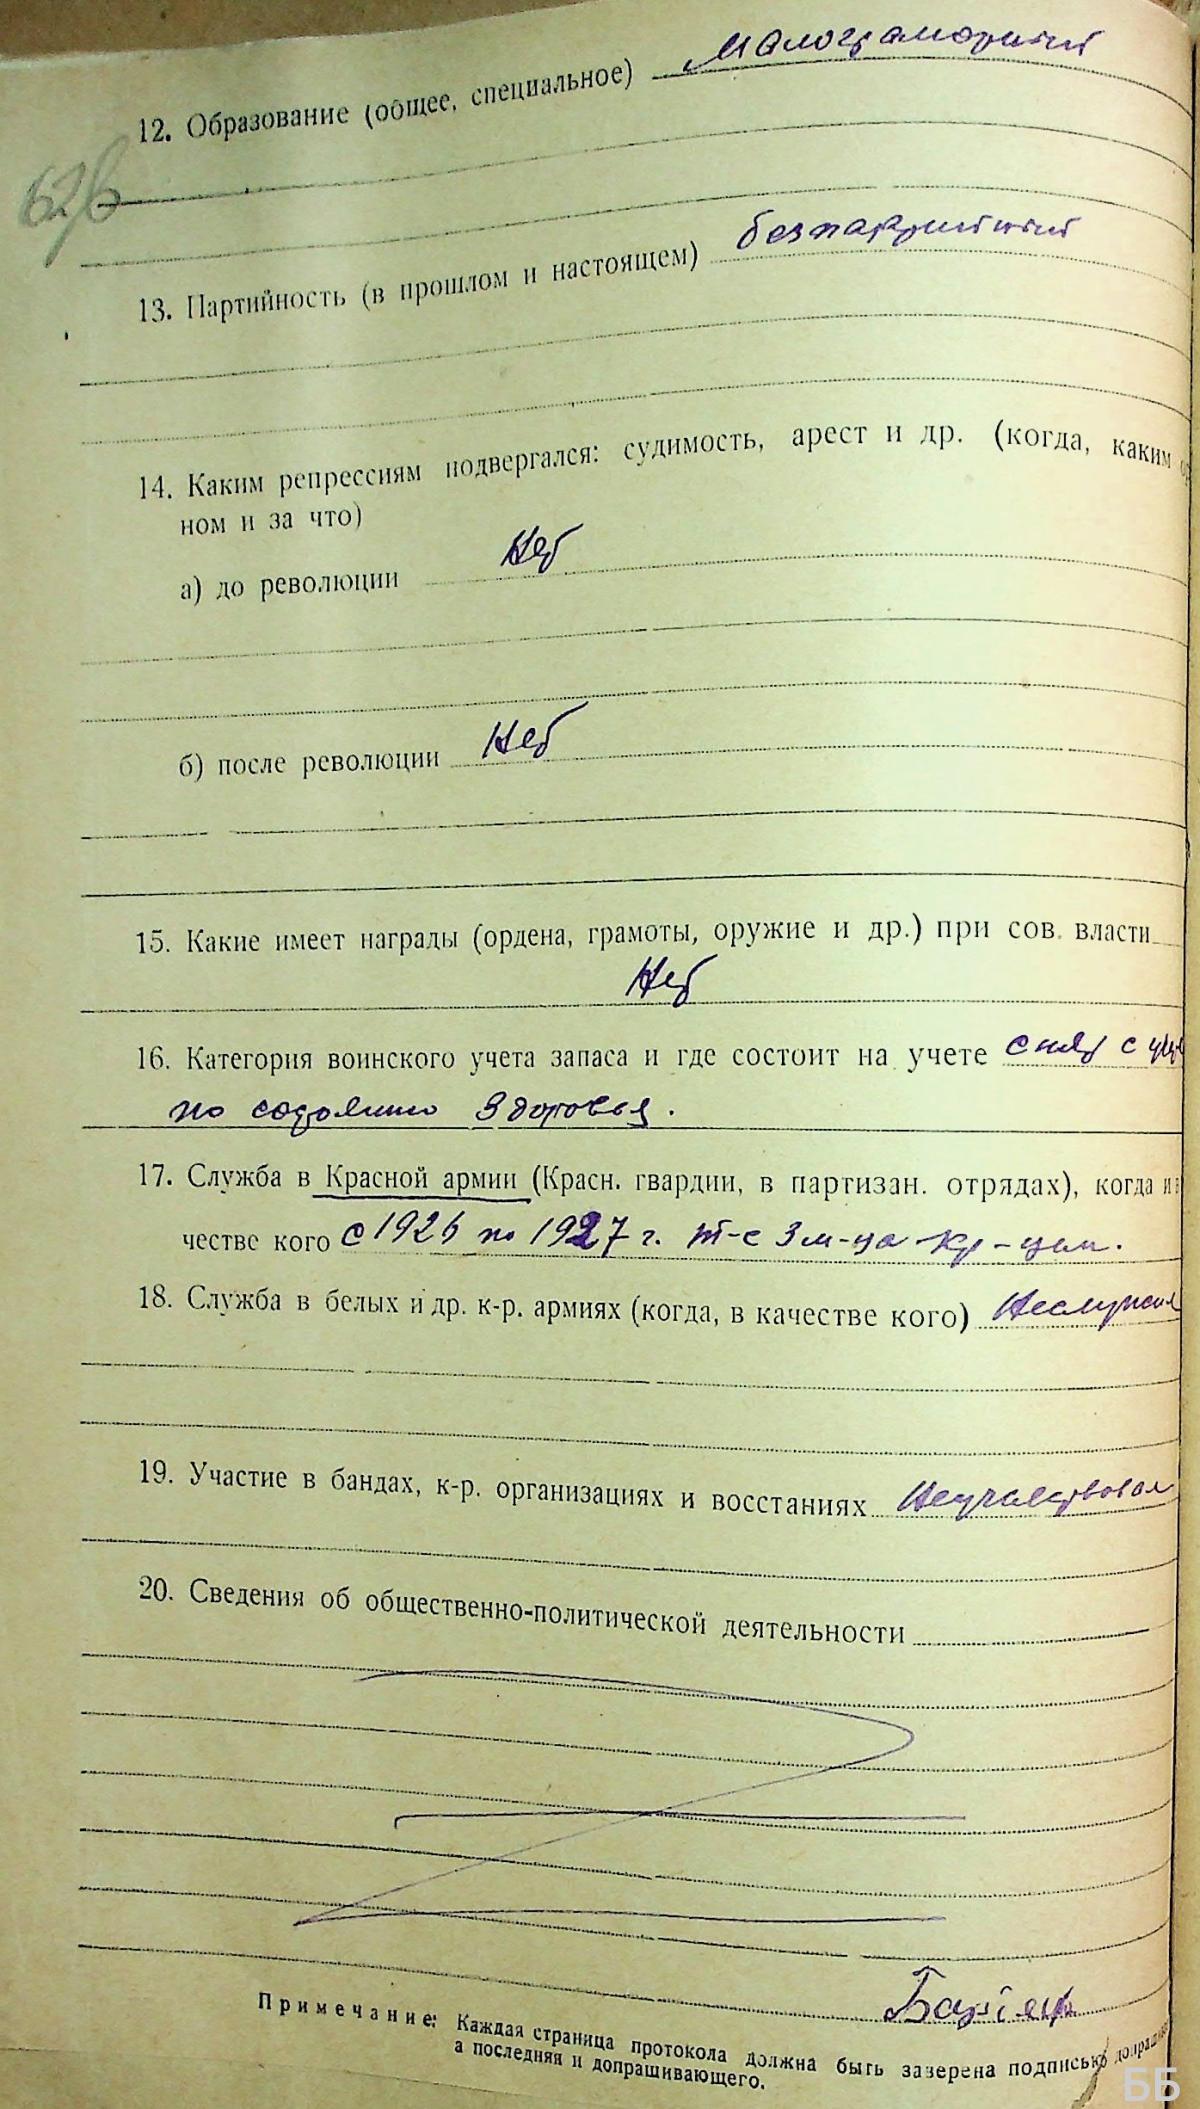 малограмотный
12. Образование (общее, специальное)
62б
безпартийный
13. Партийность (в прошлом и настоящем)
14. Каким репрессиям подвергался: судимость, арест и др. (когда, каким о
ном и за что)
а) до революции Нет
б) после революции Нет
15. Какие имеет награды (ордена, грамоты, оружие и др.) при сов. власти
Нет
16. Категория воинского учета запаса и где состоит на учете снят с уче
по состоянию здоровья.
17. Служба в Красной армии (Красн. гвардии, в партизан. отрядах), когда и в
честве кого с 1926 по 1927 г. 3 м-ца кр-цем.
18. Служба в белых и др. к-р. армиях (когда, в качестве кого) Неслужил
19. Участие в бандах, к-р. организациях и восстаниях Неучаствовал
20. Сведения об общественно-политической деятельности
Примечание: Каждая страница протокола должна быть заверена подписью допраши
а последняя и допрашивающего.
ББ